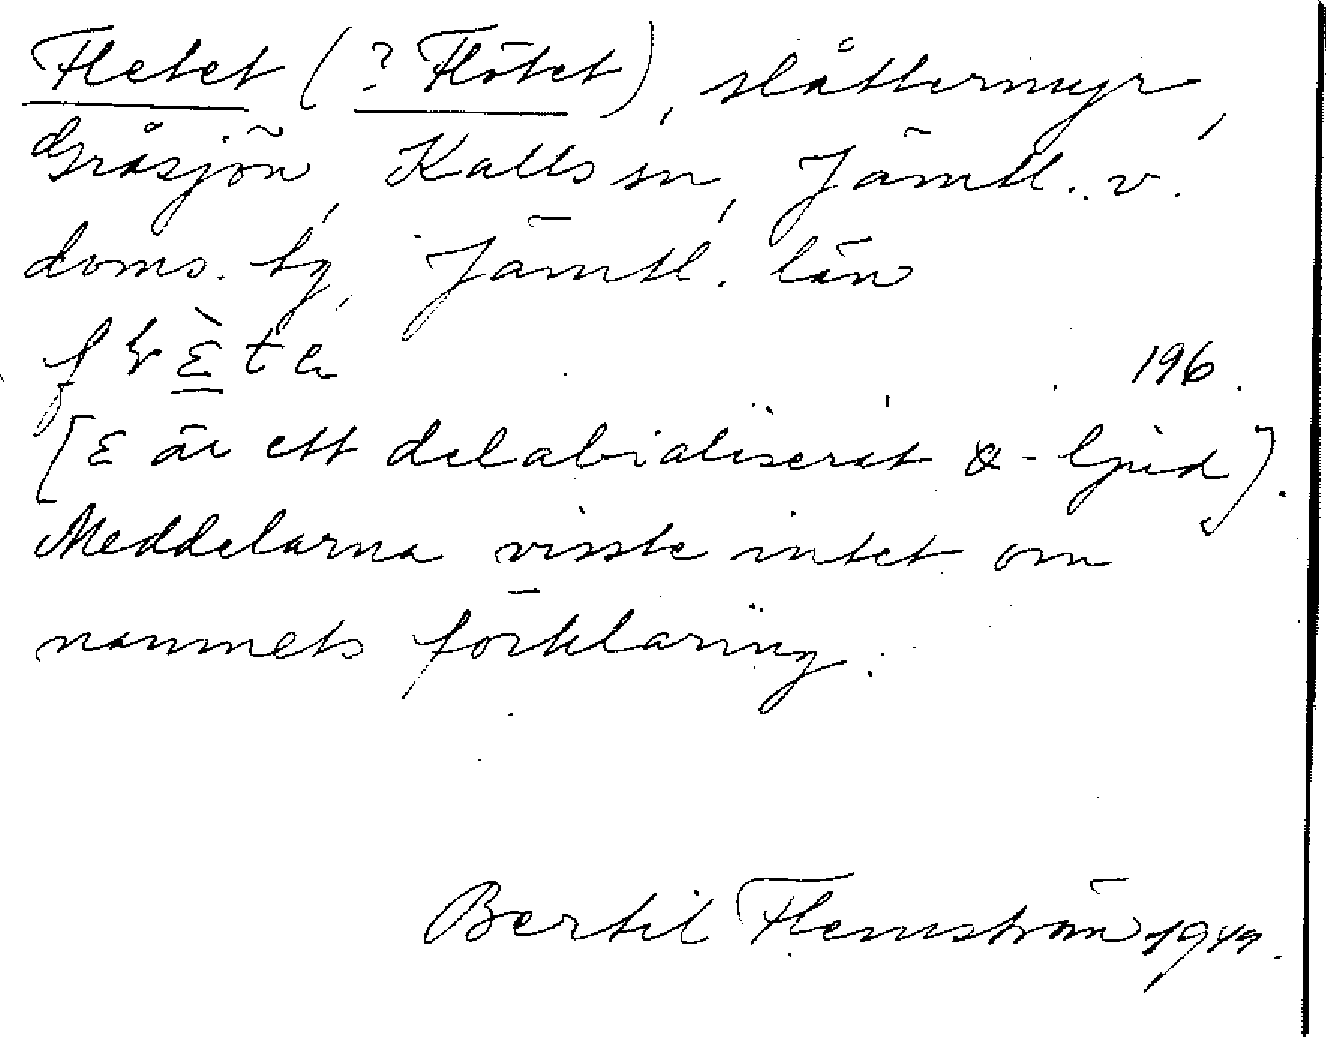 Fletet (? Flötet), slåttermyr,
Gråsjön, Kalls sn, Jämtl. v.
doms. hg, Jämtl. län
196.
[ε är ett delabialiserat œ-ljud].
Meddelarna visste intet om
namnets förklaring.
Bertil Flemström